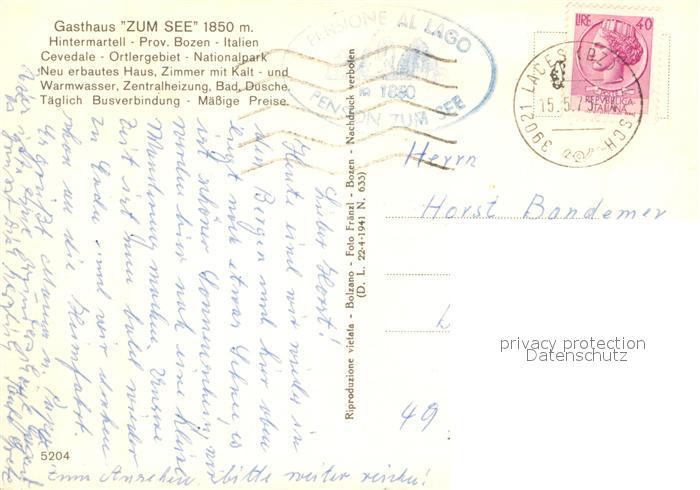 Gasthaus "ZUM SEE" 1850 m.
Hintermartell - Prov. Bozen - Italien
Cevedale - Ortlergebiet - Nationalpark
Neu erbautes Haus, Zimmer mit Kalt - und
Warmwasser, Zentralheizung, Bad, Dusche.
Täglich Busverbindung - Mäßige Preise.
PENSIONE AL LAGO
m 1850
PENSION ZUM SEE
39021 LACES (BZ)
15.5.7
LIRE 40
REPVBBLICA
ITALIANA
Riproduzione vietata - Bolzano - Foto Fränzl - Bozen - Nachdruck verboten
(D. L. 22-4-1941 N. 633)
Herrn
Horst Bandemer
49
Lieber Horst!
Heute sind wir wieder in
den Bergen und hier oben
liegt noch etwas Schnee, es
ist schöner Sonnenschein, wir
werden hier noch eine kleine
Wanderung machen. Unsere
Zeit ist nun bald wieder
zu Ende und wir denken
schon an die Heimfahrt.
Es grüßt Mama u. Papa
Zum Ansehen, bitte weiter reichen!
5204
privacy protection
Datenschutz